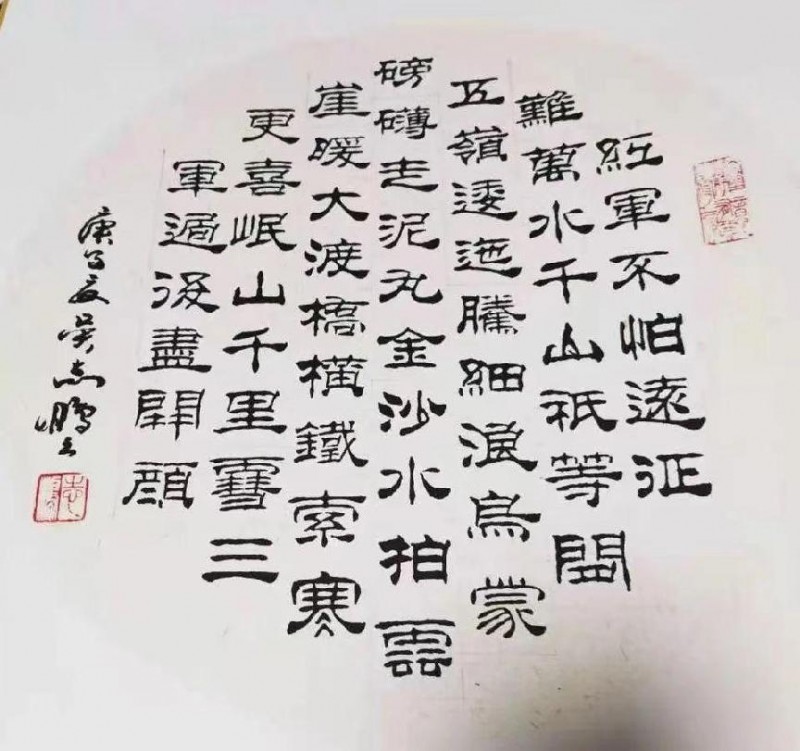 紅軍不怕遠征
難萬水千山祇等閒
五嶺逶迤騰細浪烏蒙
磅礴走泥丸金沙水拍雲
崖暖大渡橋橫鐵索寒
更喜岷山千里雪三
軍過後盡開顏
庚子夏吳志鵬